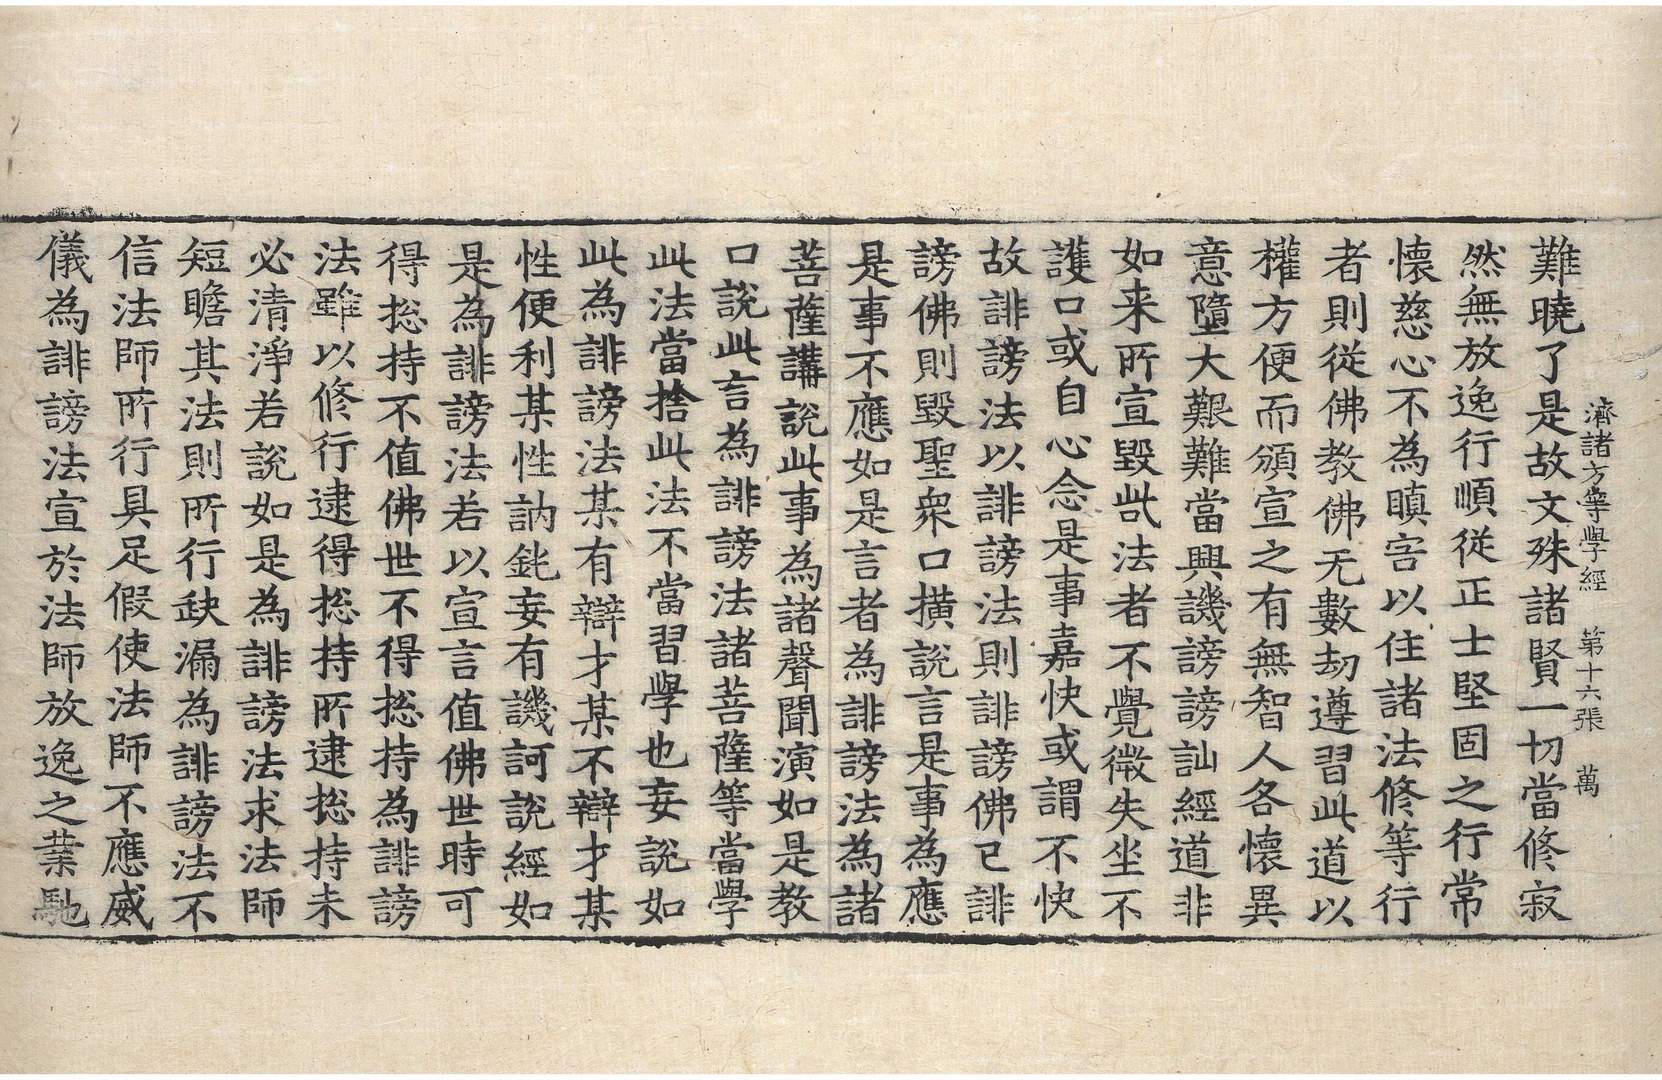 濟諸方等學經 第十六張 萬
難曉了是故文殊諸賢一切當修寂
然無放逸行順從正士堅固之行常
懷慈心不為瞋害以住諸法修等行
者則從佛教佛无數劫遵習此道以
權方便而頒宣之有無智人各懷異
意墮大艱難當興譏謗謗訕經道非
如来所宣毀呰法者不覺微失坐不
護口或自心念是事嘉快或謂不快
故誹謗法以誹謗法則誹謗佛已誹
謗佛則毀聖衆口橫說言是事為應
是事不應如是言者為誹謗法為諸
菩薩講說此事為諸聲聞演如是教
口說此言為誹謗法諸菩薩等當學
此法當捨此法不當習學也妄說如
此為誹謗法某有辯才某不辯才某
性便利某性訥鈍妄有譏訶說經如
是為誹謗法若以宣言值佛世時可
得揔持不值佛世不得揔持為誹謗
法雖以修行逮得揔持所逮揔持未
必清淨若說如是為誹謗法求法師
短瞻其法則所行缺漏為誹謗法不
信法師所行具足假使法師不應威
儀為誹謗法宣於法師放逸之業馳